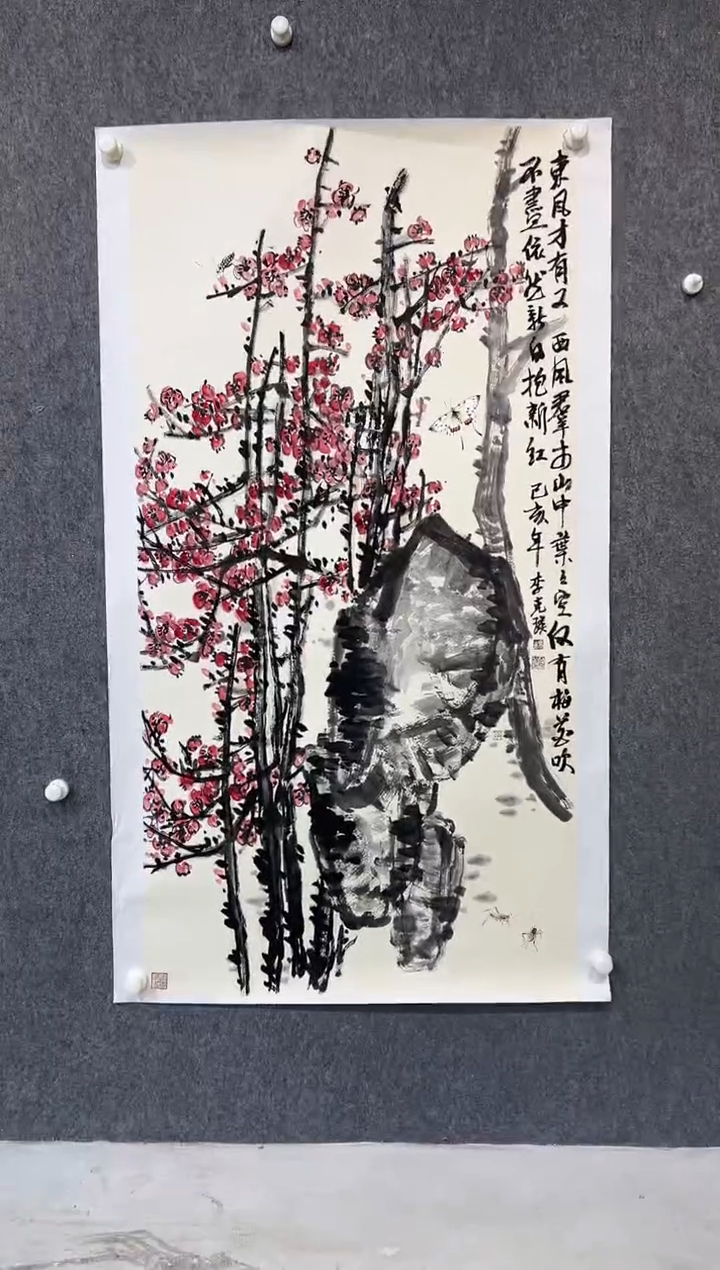 東風才有又西風群木山中葉立空仅有梅花吹
不盡依然新白抱新紅 己亥年 李克瑛